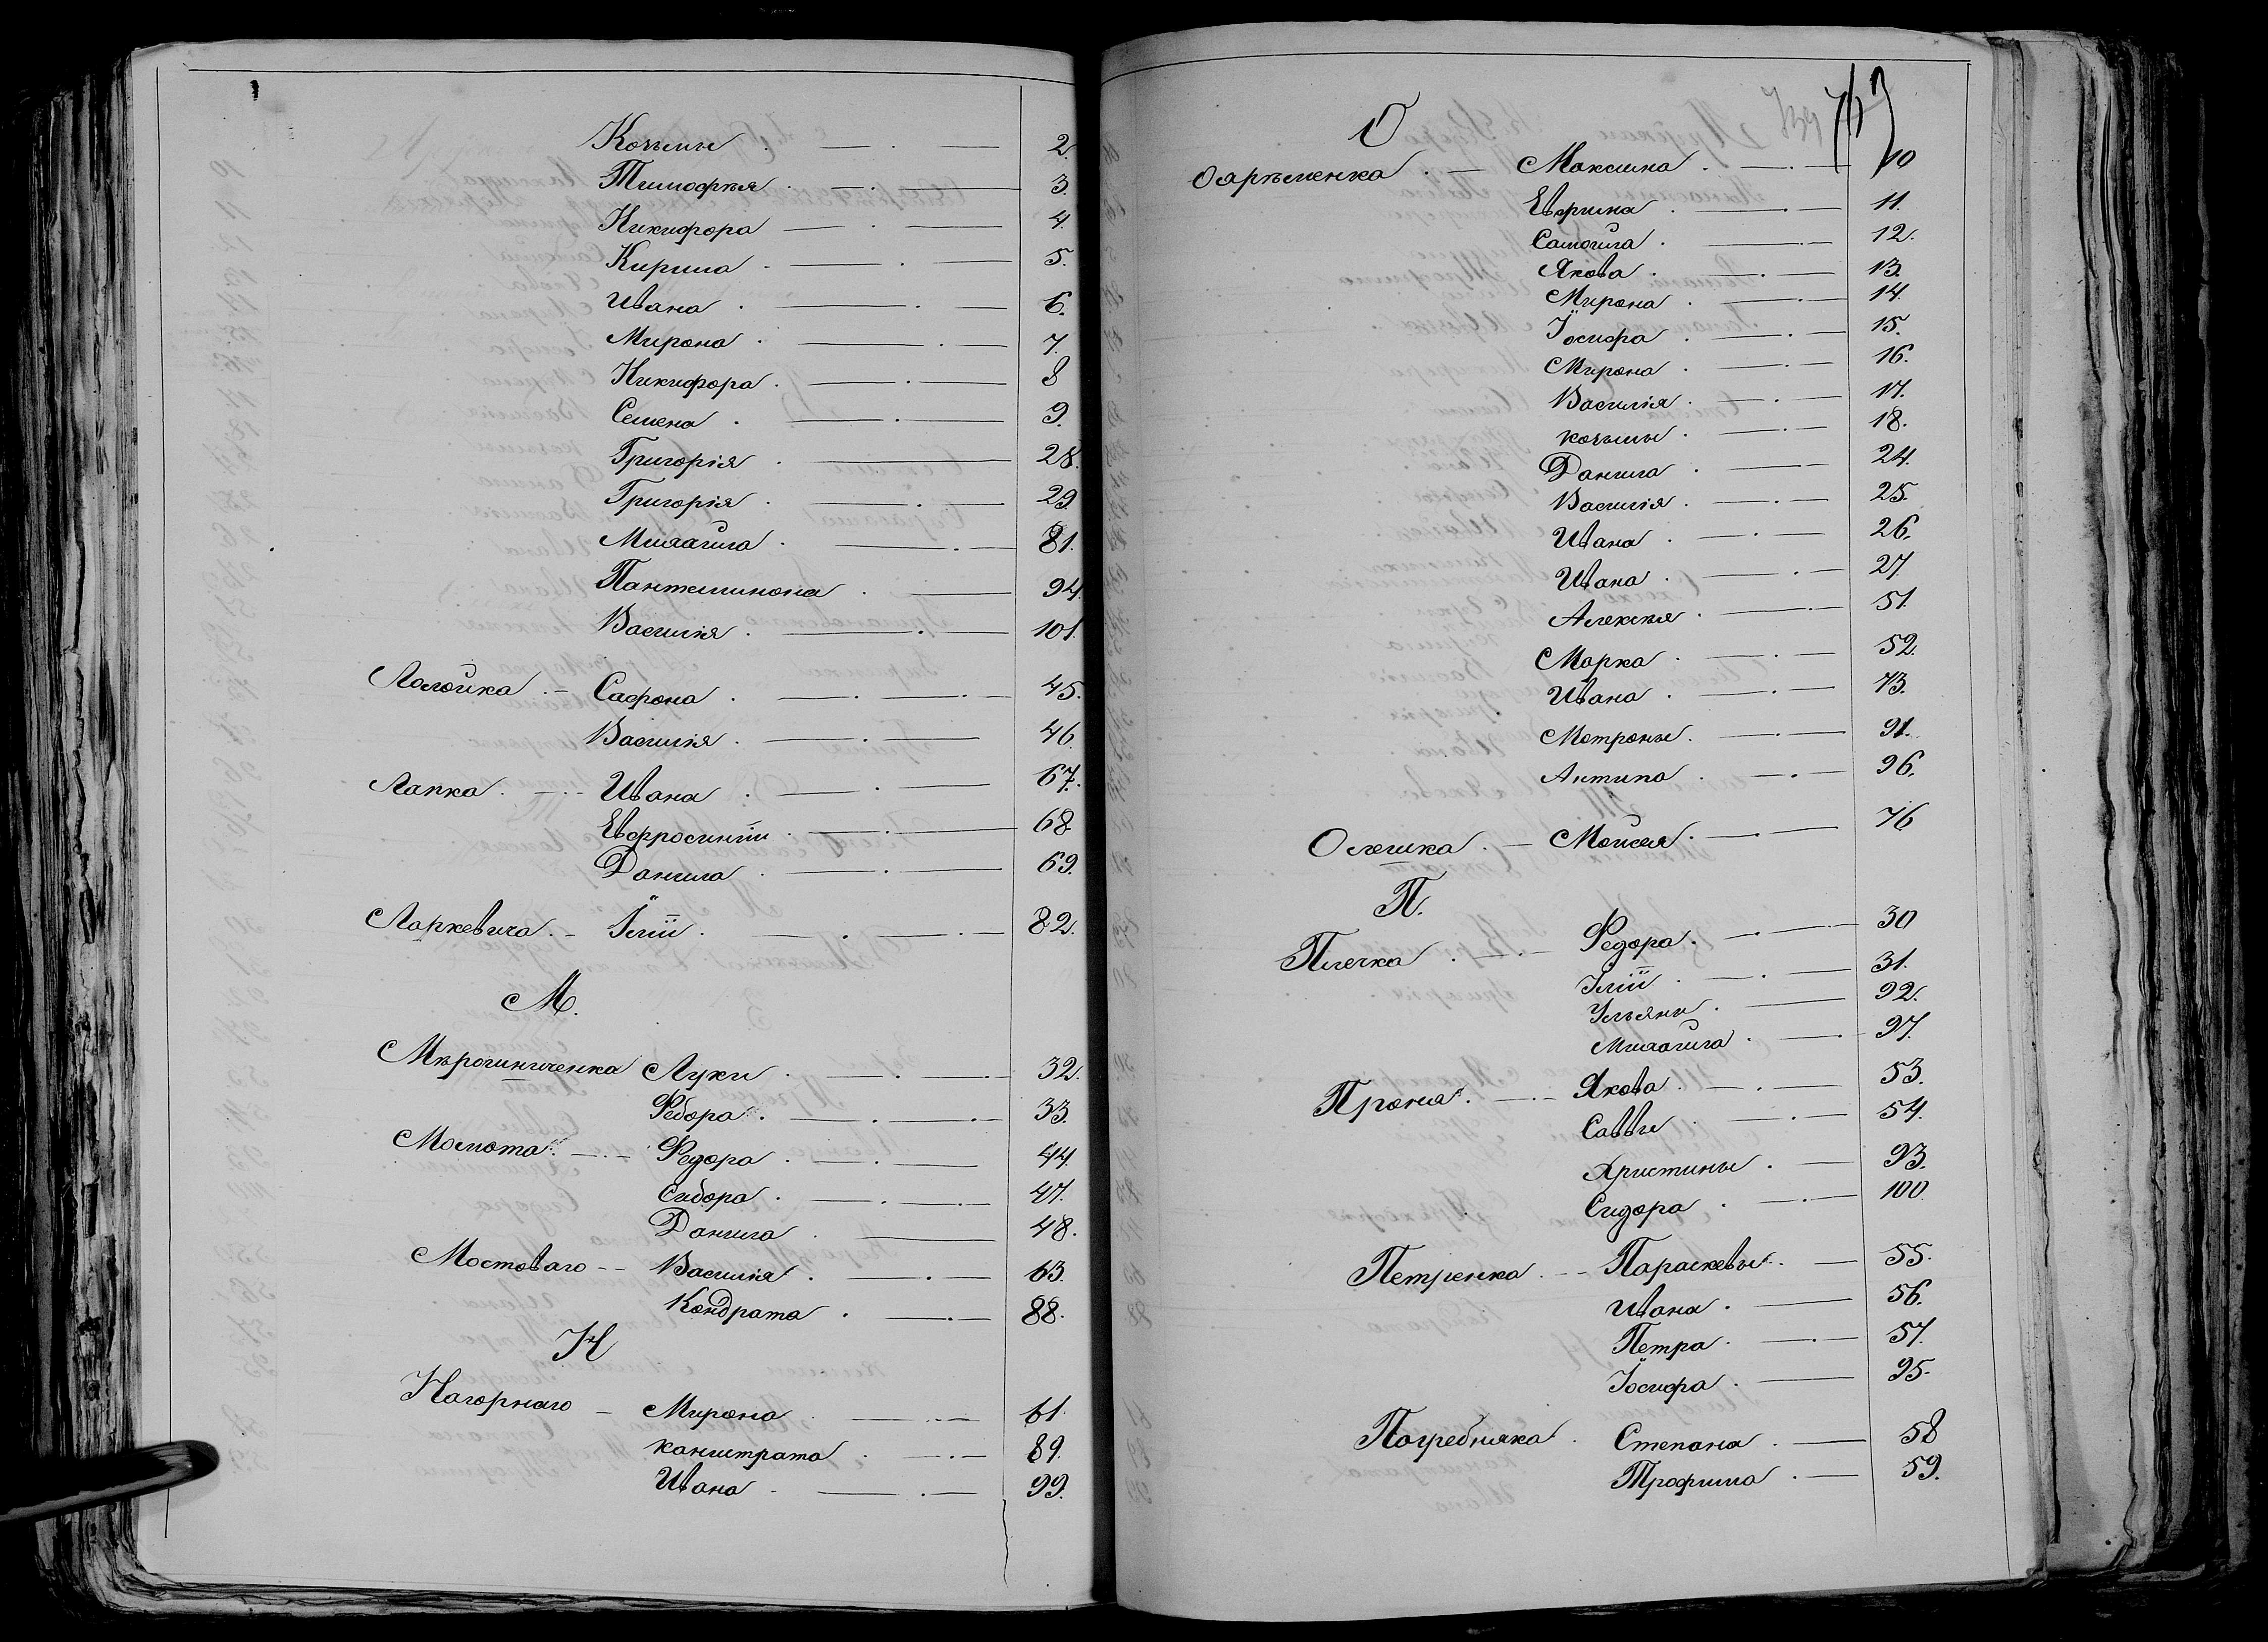 Козьмы 2.
Тимофѣя 3.
Никифора 4.
Кирила 5.
Ивана 6.
Мирона 7.
Никифора 8
Семена 9.
Григорія 28.
Григорія 29
Михаила 81.
Пантелимона 94.
Василія 101.
Лологика Сафона 45.
Василія 46.
Лапка Ивана 67.
Евфросиніи 68.
Данила 69.
Ларкевича Іліи 82.
М.
Мѣрошниченка Луки 32.
Ѳедора 33.
Момота Ѳедора 44.
Сидора 47.
Данила 48.
Мостоваго Василія 63.
Кондрата 88.
Н
Нагорнаго Мирона 61.
Калистрата 89.
Ивана 99.
О
Максима 10
Евфима 11.
Самойла 12.
Якова 13.
Мирона 14.
Іосифа 15.
Мирона 16.
Василія 17.
Козьмы 18.
Данила 24.
Василія 25.
Ивана 26.
Ивана 27
Алексѣя 51.
Марка 52.
Ивана 73.
Мотроны 91.
Антипа 96.
Олешка Мойсея 76
П.
Плечка Ѳедора 30
Іліи 31.
Ульяны 92.
Михаила 97.
Проня Якова 53.
Саввы 54.
Христины 93.
Сидора 100
Петренка Параскевы 55.
Ивана 56.
Петра 57.
Іосифа 95.
Погребняка Степана 58
Трофима 59.